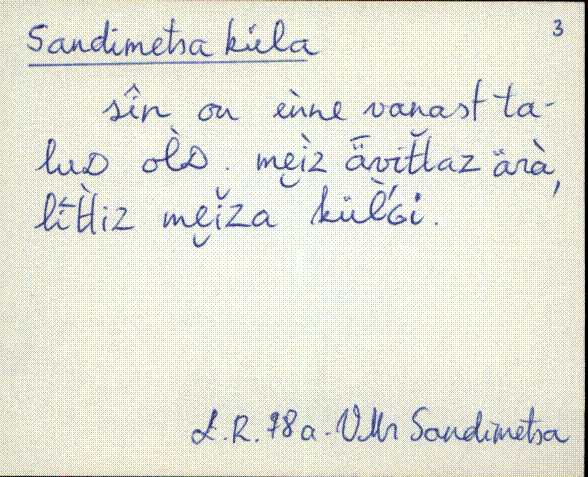 3
Sandimetsa küla
sîn on ènne vanast ta-
luD òlD. mȩiz ǟvit̆t̆laz ärà,
lĭt̀tiz mȩiza kül̀Gi.
L.R. 78 a. VMr Sandimetsa